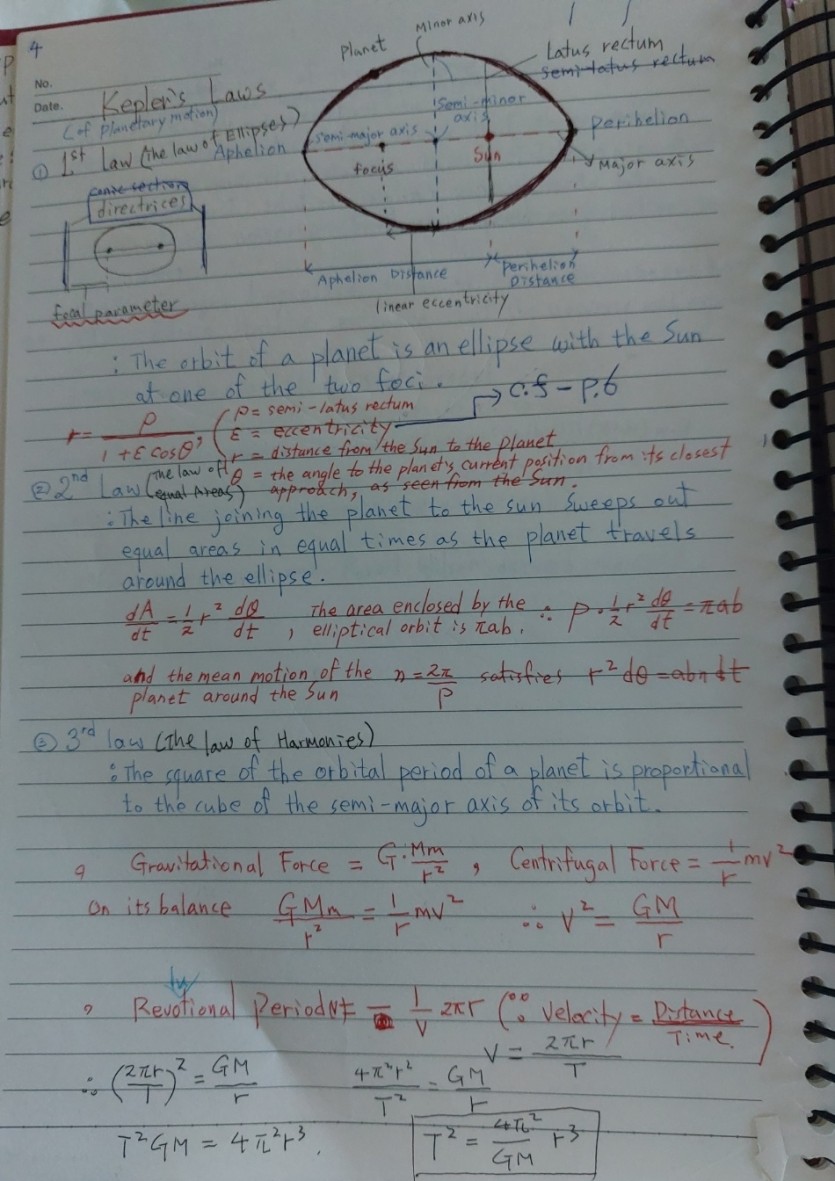 4
No.
Date.
Kepler's Laws
(of planetary motion)
① 1st Law (the law of Ellipses)
planet
Minor axis
Latus rectum
semi-latus rectum
Semi-minor
axis
semi-major axis
Aphelion
focus
Sun
Perihelion
Major axis
conic section
directrices
focal parameter
Aphelion Distance
Perihelion
Distance
linear eccentricity
: The orbit of a planet is an ellipse with the Sun
at one of the two foci.
c.f - P.6
r = p / (1 + ε cosθ), ( p = semi-latus rectum
ε = eccentricity
r = distance from the Sun to the planet
θ = the angle to the planet's current position from its closest
approach, as seen from the Sun.
② 2nd Law (the law of equal Areas)
: The line joining the planet to the sun sweeps out
equal areas in equal times as the planet travels
around the ellipse.
dA/dt = 1/2 r² dθ/dt , The area enclosed by the elliptical orbit is πab. ∴ P · 1/2 r² dθ/dt = πab
and the mean motion of the planet around the Sun n = 2π/P satisfies r² dθ = abn dt
③ 3rd law (The law of Harmonies)
: The square of the orbital period of a planet is proportional
to the cube of the semi-major axis of its orbit.
Gravitational Force = G · Mm/r² , Centrifugal Force = 1/r mv²
on its balance GMm/r² = 1/r mv² ∴ V² = GM/r
Revotional Period = 1/V 2πr (∵ Velocity = Distance/Time.)
V = 2πr/T
∴ (2πr/T)² = GM/r 4π²r²/T² = GM/r
T²GM = 4π²r³. T² = 4π²/GM r³